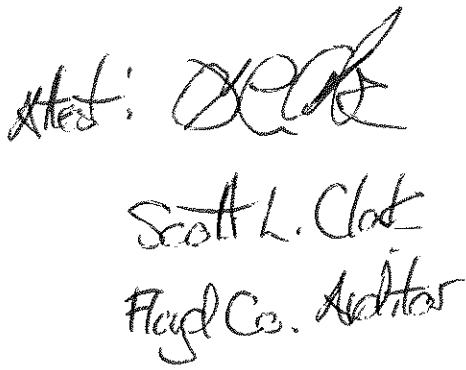 Attest:
Scott L. Clark
Floyd Co. Auditor